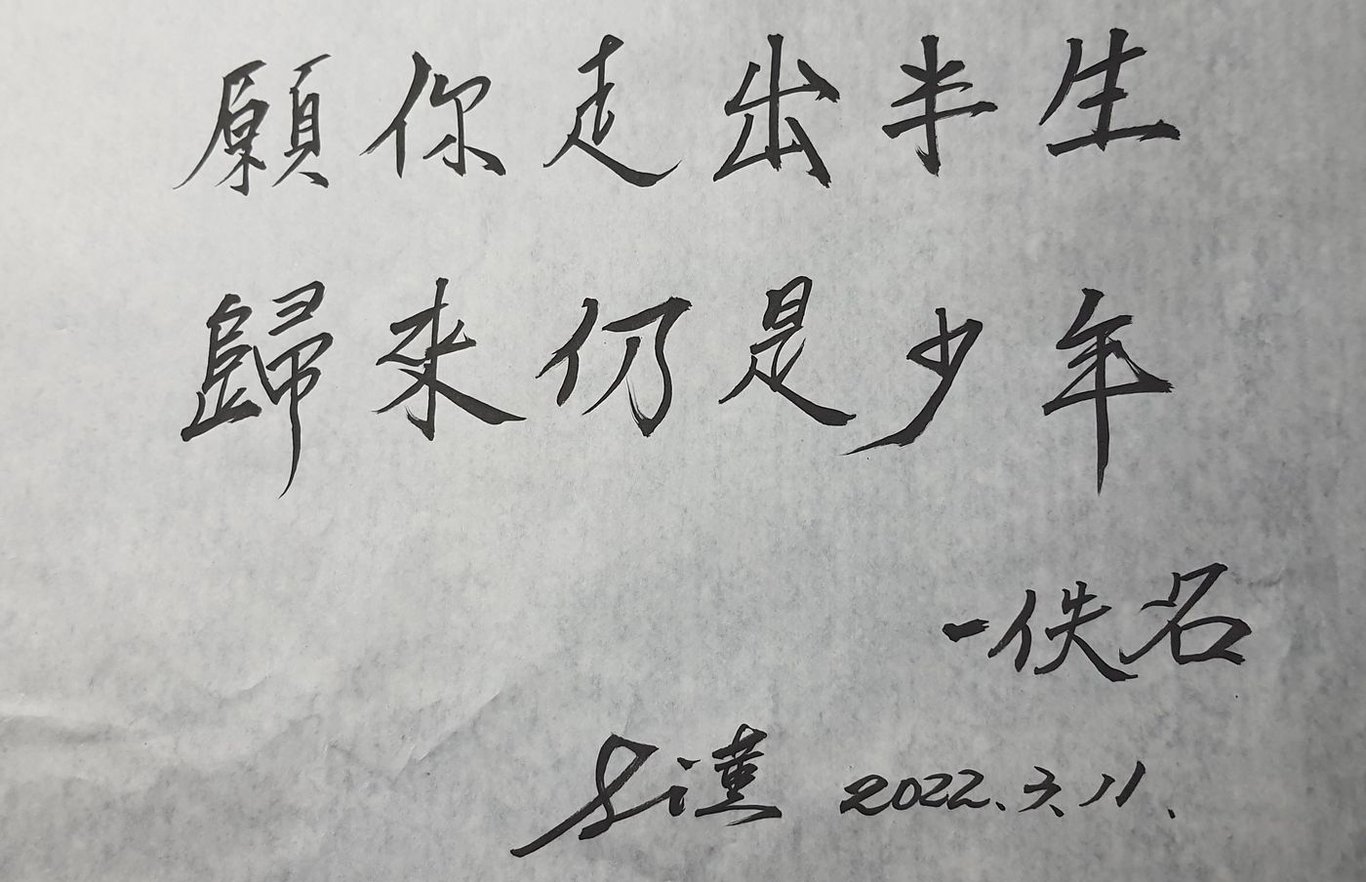 願你走出半生
歸來仍是少年
-佚名
2022.3.11.